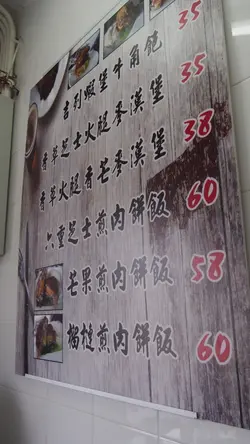 吉列蝦堡牛角飽 35
香草芝士火腿麥漢堡 35
香草火腿香芒麥漢堡 38
六重芝士煎肉餅飯 60
芒果煎肉餅飯 58
榴槤煎肉餅飯 60